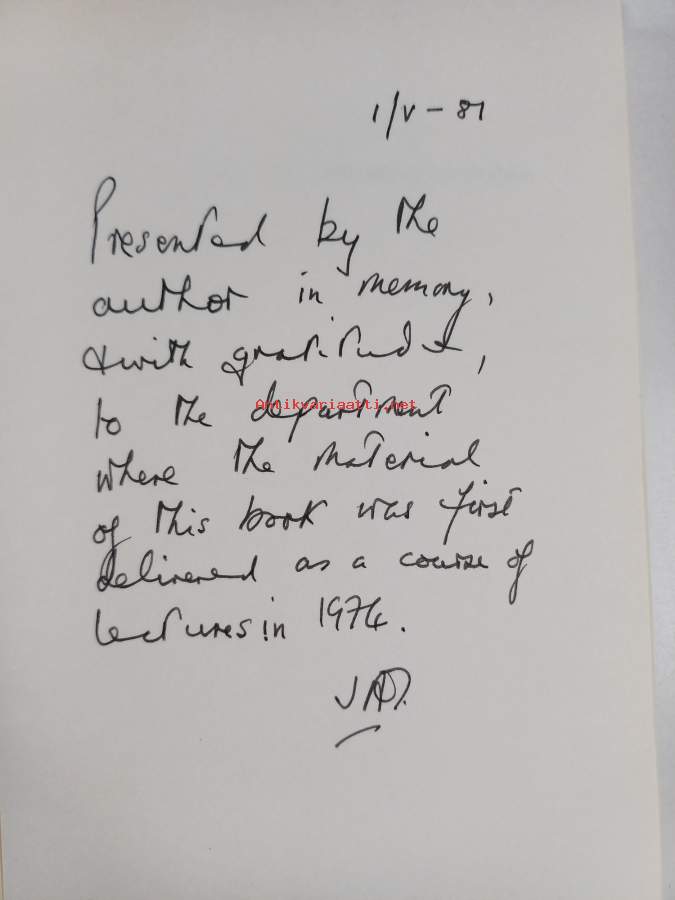 1/V - 81
Presented by the
author in memory,
& with gratitude,
to the department
Antikvariaatti.net
where the material
of this book was first
delivered as a course of
lectures in 1974.